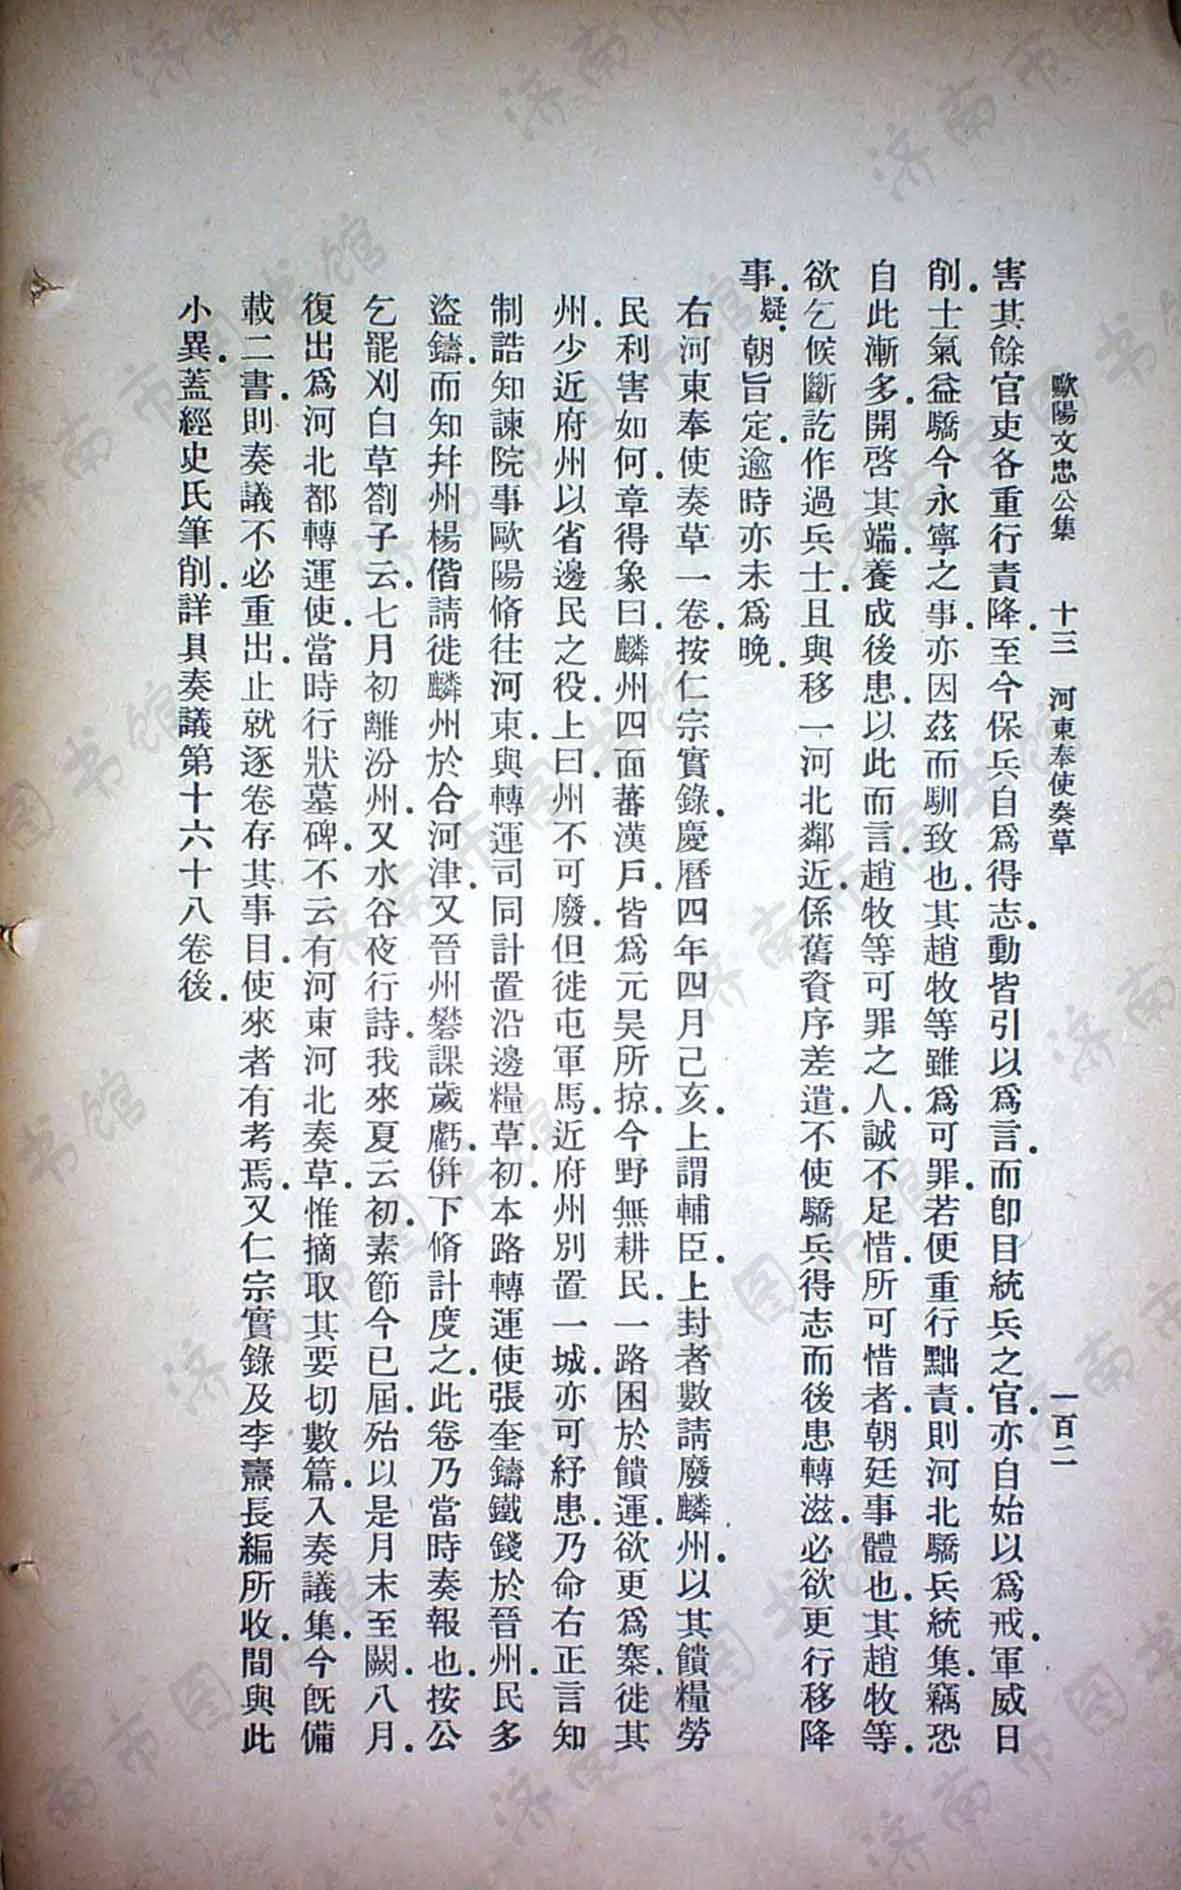 歐陽文忠公集　十三　河東奉使奏草　一百二
害其餘官吏各重行責降．至今保兵自爲得志．動皆引以爲言．而卽目統兵之官．亦自始以爲戒．軍威日
削．士氣益驕今永寧之事．亦因茲而馴致也．其趙牧等雖爲可罪．若便重行黜責．則河北驕兵統集．竊恐
自此漸多．開啓其端．養成後患．以此而言．趙牧等可罪之人．誠不足惜．所可惜者．朝廷事體也．其趙牧等．
欲乞候斷訖作過兵士．且與移一河北鄰近．係舊資序差遣．不使驕兵得志而後患轉滋．必欲更行移降
事．疑．朝旨定．逾時亦未爲晚．
右河東奉使奏草一卷．按仁宗實錄．慶曆四年四月己亥．上謂輔臣．上封者數請廢麟州．以其饋糧勞
民利害如何．章得象曰．麟州四面蕃漢戶．皆爲元昊所掠．今野無耕民．一路困於饋運．欲更爲寨．徙其
州．少近府州以省邊民之役．上曰．州不可廢．但徙屯軍馬．近府州別置一城．亦可紓患．乃命右正言知
制誥知諫院事歐陽脩往河東．與轉運司同計置沿邊糧草．初．本路轉運使張奎鑄鐵錢於晉州．民多
盜鑄．而知幷州楊偕請徙麟州於合河津．又晉州礬課歲虧．併下脩計度之．此卷乃當時奏報也．按公
乞罷刈白草劄子云．七月初離汾州．又水谷夜行詩．我來夏云初．素節今已屆．殆以是月末至闕．八月．
復出爲河北都轉運使．當時行狀墓碑．不云有河東河北奏草．惟摘取其要切數篇．入奏議集．今旣備
載二書．則奏議不必重出．止就逐卷存其事目．使來者有考焉．又仁宗實錄及李燾長編所收．間與此
小異．蓋經史氏筆削．詳具奏議第十六十八卷後．